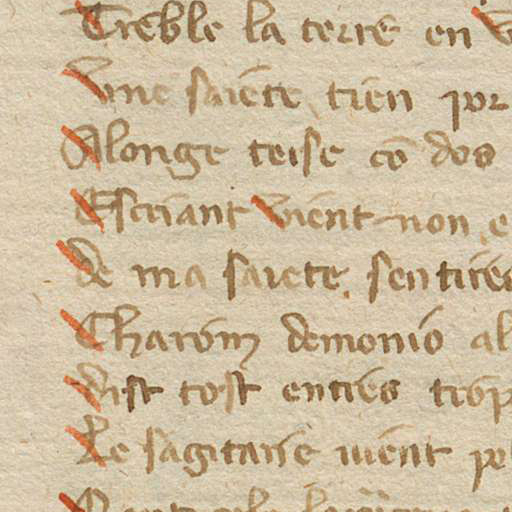 Treble la terre en
Vne saiete tien por
Alonge teise cō dos
Escriant vient non e
de ma saiete sentires
Charom demonio al
dist tost enties trop
Le sagitaire uient pe